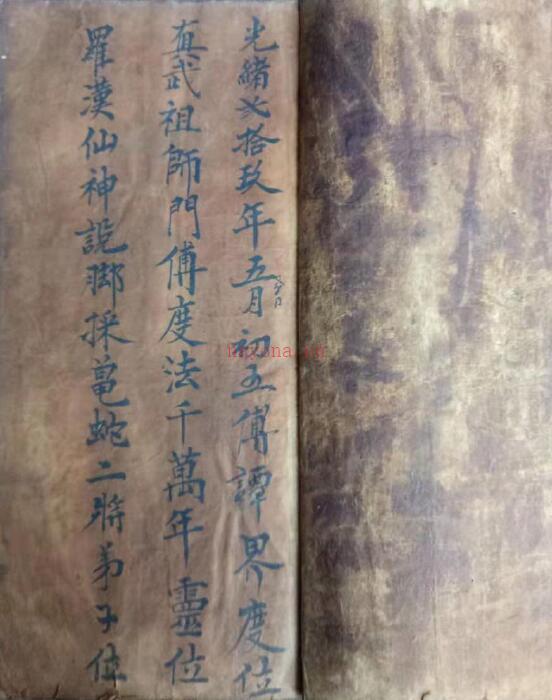 光緒弍拾玖年五月初五傅譚界度位
真武祖師門傅度法千萬年靈位
羅漢仙神詭腳採龟蛇二将弟子位